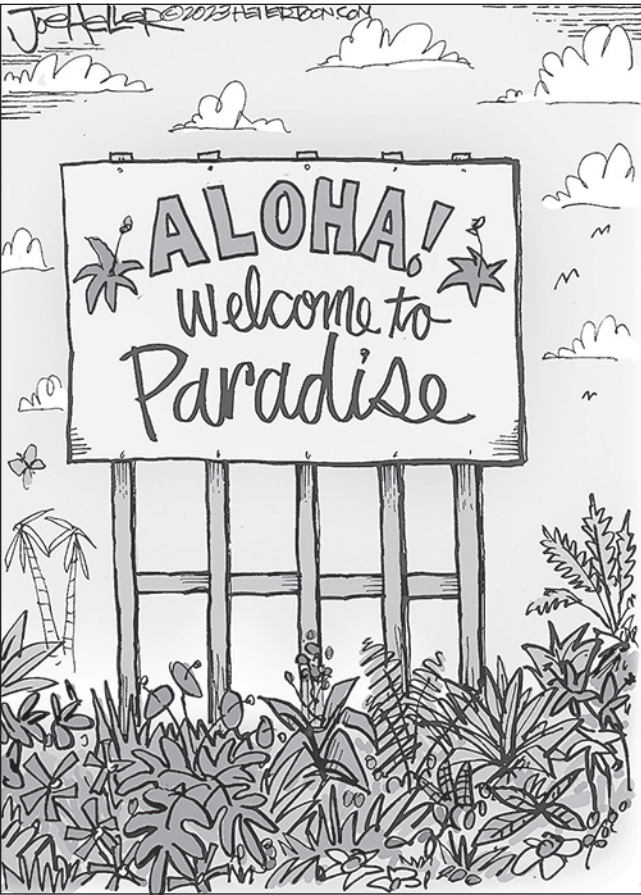 Joe Heller ©2023 HELLERTOON.COM
ALOHA!
Welcome to
Paradise